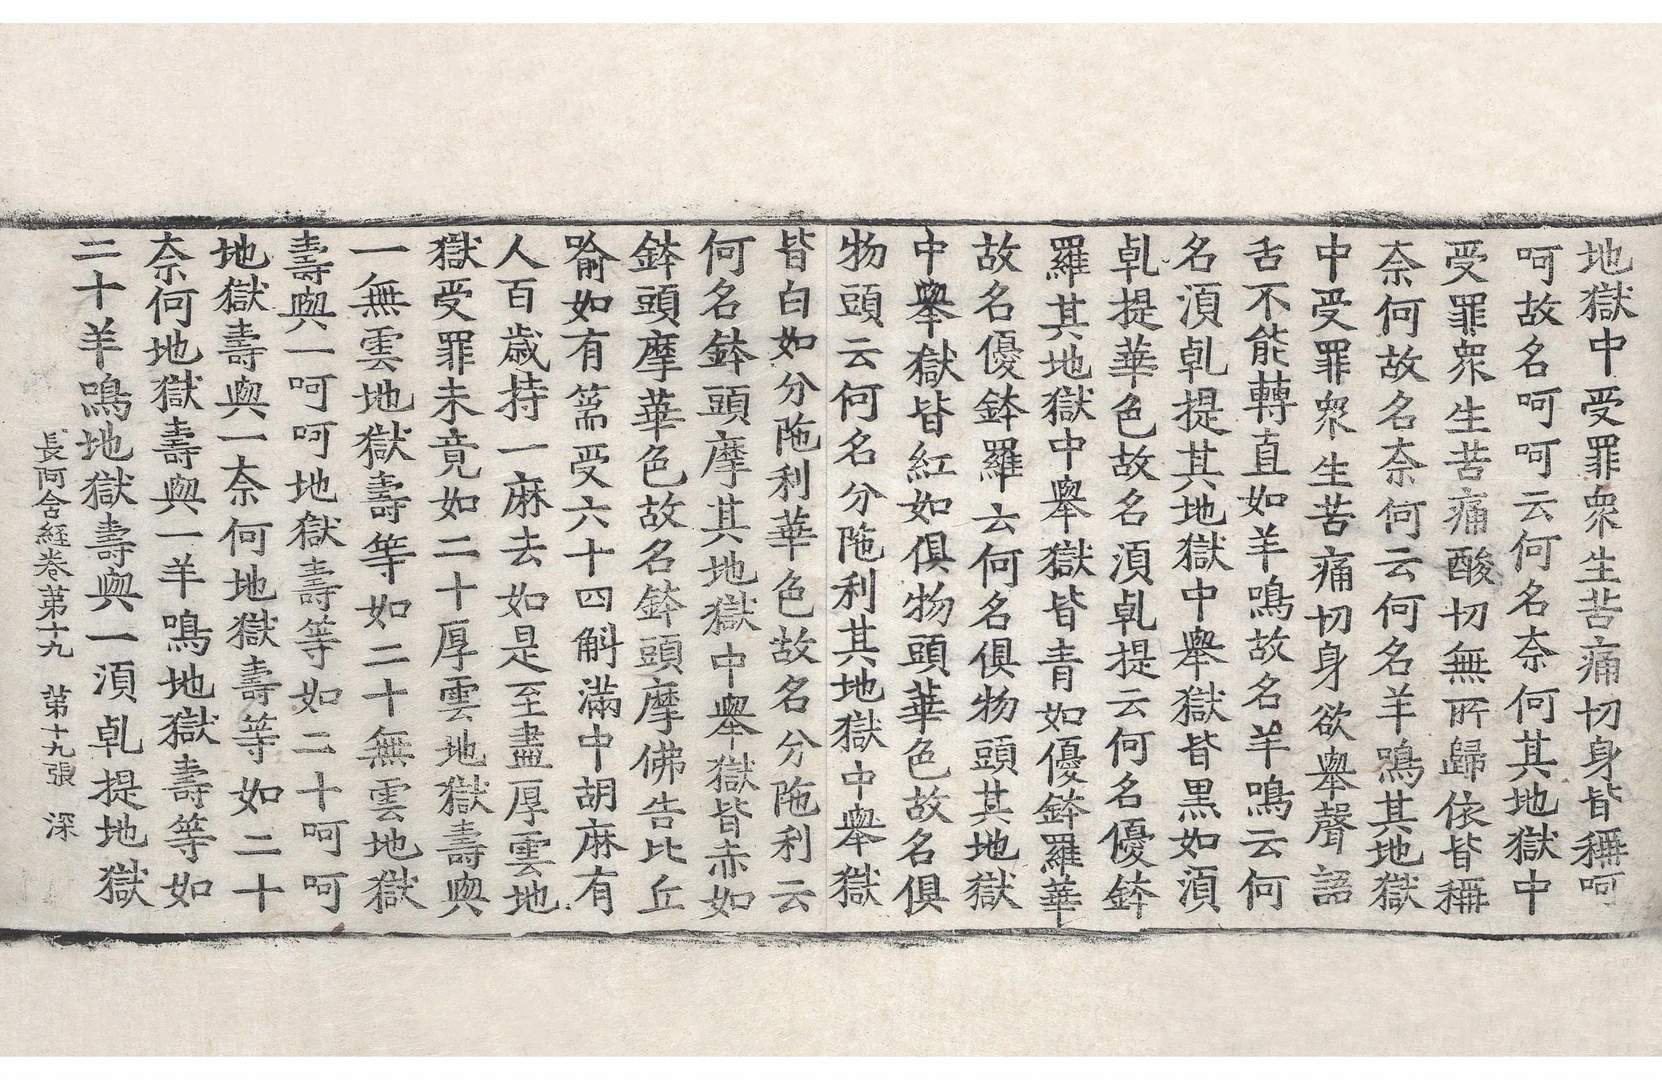 地獄中受罪衆生苦痛切身皆稱呵
呵故名呵呵云何名奈何其地獄中
受罪衆生苦痛酸切無所歸依皆稱
奈何故名奈何云何名羊鳴其地獄
中受罪衆生苦痛切身欲舉聲語
舌不能轉直如羊鳴故名羊鳴云何
名湏乹提其地獄中舉獄皆黒如湏
乹提華色故名湏乹提云何名優鉢
羅其地獄中舉獄皆青如優鉢羅華
故名優鉢羅云何名俱物頭其地獄
中舉獄皆紅如俱物頭華色故名俱
物頭云何名分陁利其地獄中舉獄
皆白如分陁利華色故名分陁利云
何名鉢頭摩其地獄中舉獄皆赤如
鉢頭摩華色故名鉢頭摩佛告比丘
喻如有篅受六十四斛滿中胡麻有
人百歲持一麻去如是至盡厚雲地
獄受罪未竟如二十厚雲地獄壽與
一無雲地獄壽等如二十無雲地獄
壽與一呵呵地獄壽等如二十呵呵
地獄壽與一奈何地獄壽等如二十
奈何地獄壽與一羊鳴地獄壽等如
二十羊鳴地獄壽與一湏乹提地獄
長阿含經卷第十九 第十九張 深